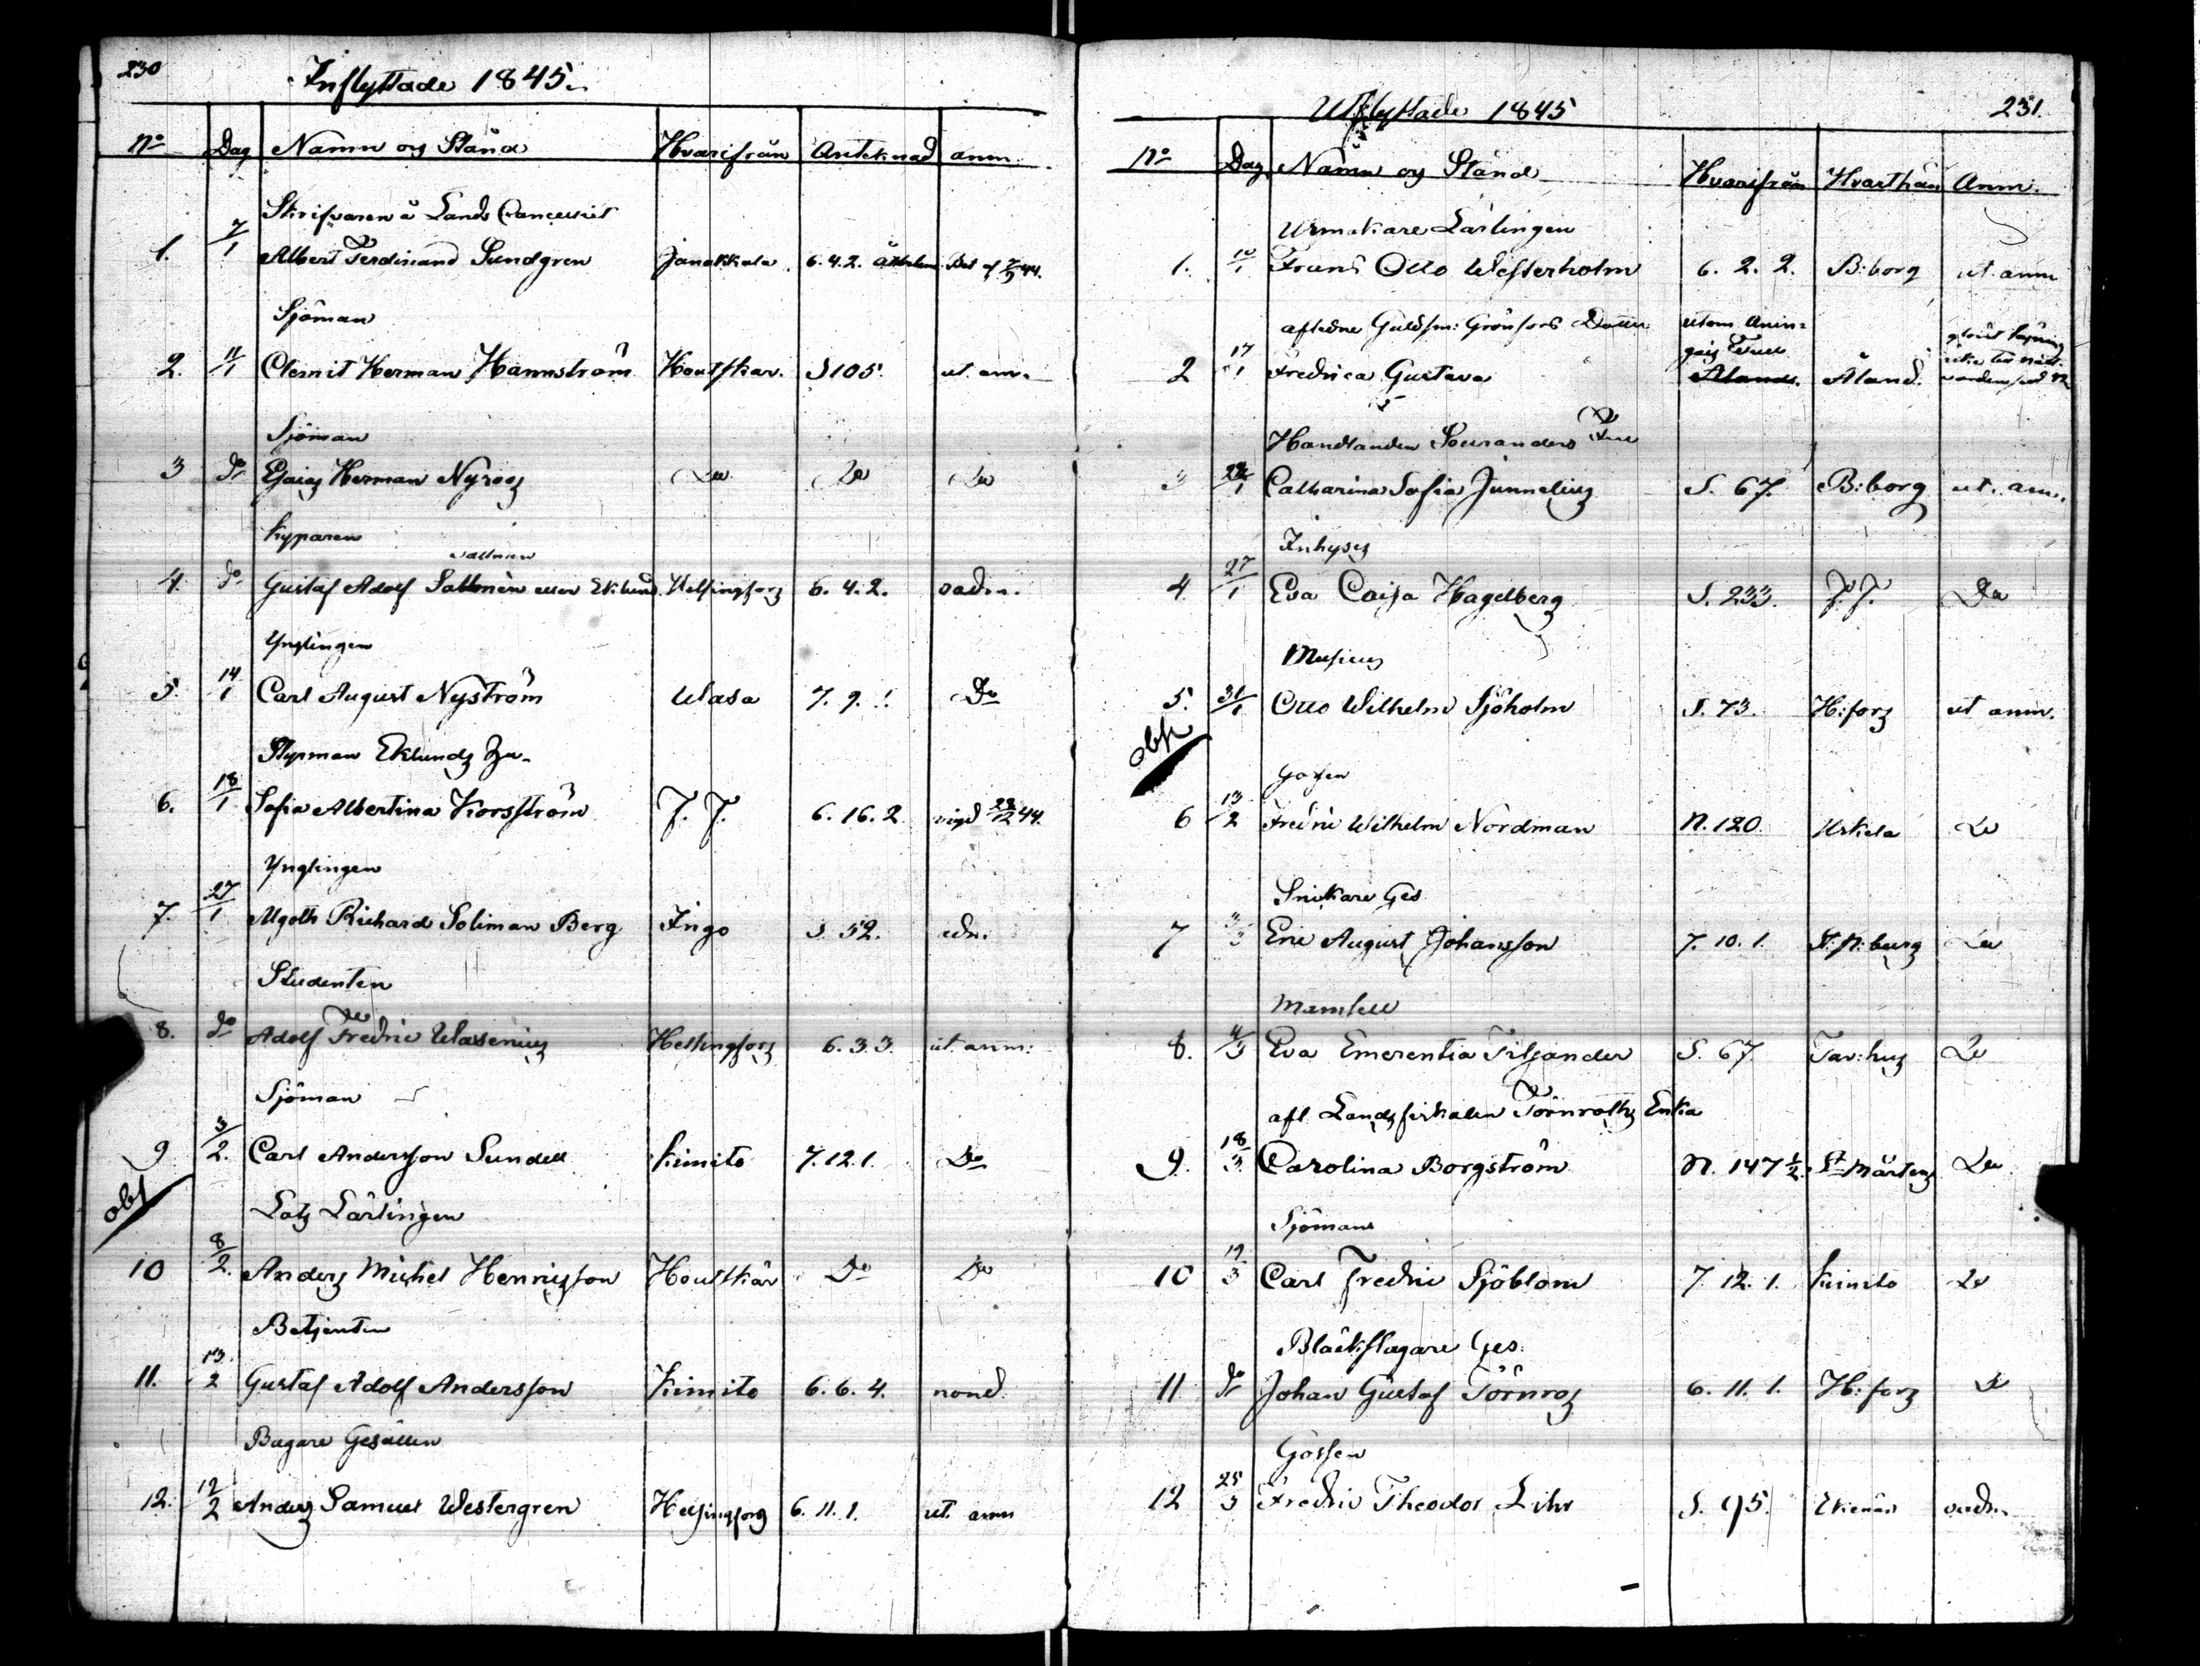 230
Inflyttade 1845.
No Dag Namn og Stånd Hvarifrån Anteknad anm.
Skrifvaren å Lands Cancelliet
1. 7/1 Albert Ferdinand Sundgren Janakkala 6. 4. 2.
Sjöman
2. 11/1 Herman Hannström Houtskar. S 105. ut. an.
Sjöman
3 do Esaias Herman Nyroos Do Do Do
kyparen
4. do Gustaf Adolf Sallonen eller Eklund Helsingfors 6. 4. 2.
Ynglingen
5. 14/1 Carl August Nyström Wasa 7. 9. Do
Styrman Eklunds hu.
6. 18/1 Sofia Albertina Korsström J. J. 6. 16. 2 vigd 44.
Ynglingen
7. 27/1 Richard Soliman Berg Ingo S. 52.
Studenten
8. do Adolf Fredric Wasenius Helsingfors 6. 3. 3. ut. anm:
Sjöman
9 3/2. Carl Andersson Sundell Kimito 7. 12. 1. Do
obs
Lots Lärlingen
10 8/2. Anders Michel Henricsson Houtskär Do Do
Betjenten
11. 13/2 Gustaf Adolf Andersson Kimito 6. 6. 4. nond.
Bagare Gesällen
12. 12/2 Anders Samuel Westergren Helsingfors 6. 11. 1. ut. anm
Utflyttade 1845
231.
No Dag Namn og Stånd Hvarifrån Hvarthän Anm.
Urmakare Lärlingen
1. 10/1 Frans Otto Westerholm 6. 2. 2. B:borg ut. anm
afledne Guldsm: Grönfors Dotter utom Anin=
2 17/1 Fredrica Gustava gais Tull Åland.
Handlanden Souranders Fru
3 Catharina Sofia Junnelius S. 67. B:borg ut. an.
Inhyses
4 27/1 Eva Caisa Hagelberg S. 233. J. J. Do
Musicus
5. 31/1 Otto Wilhelm Sjöholm S. 73. H:fors ut anm.
obs
Gossen
6 13/2 Fredric Wilhelm Nordman N. 120. Uskela Do
Snikare Ges
7 3/3 Eric August Johansson 7. 10. 1. St. P:burg Do
Mamsell
8. 4/3 Eva Emerentia Tiljander S. 67. Tav:hus Do
afl Landsfiskalen Törnroths Enka
9. 18/3 Carolina Borgström N. 147 1/2. St Mårtens Do
Sjöman
10 19/3 Carl Fredric Sjöblom 7. 12. 1. Kimito Do
Bläckslagare Ges.
11 do Johan Gustaf Törnros 6. 11. 1. H:fors Do
Gossen
12 25/3 Fredric Theodor Lihr S. 95. Ekenäs